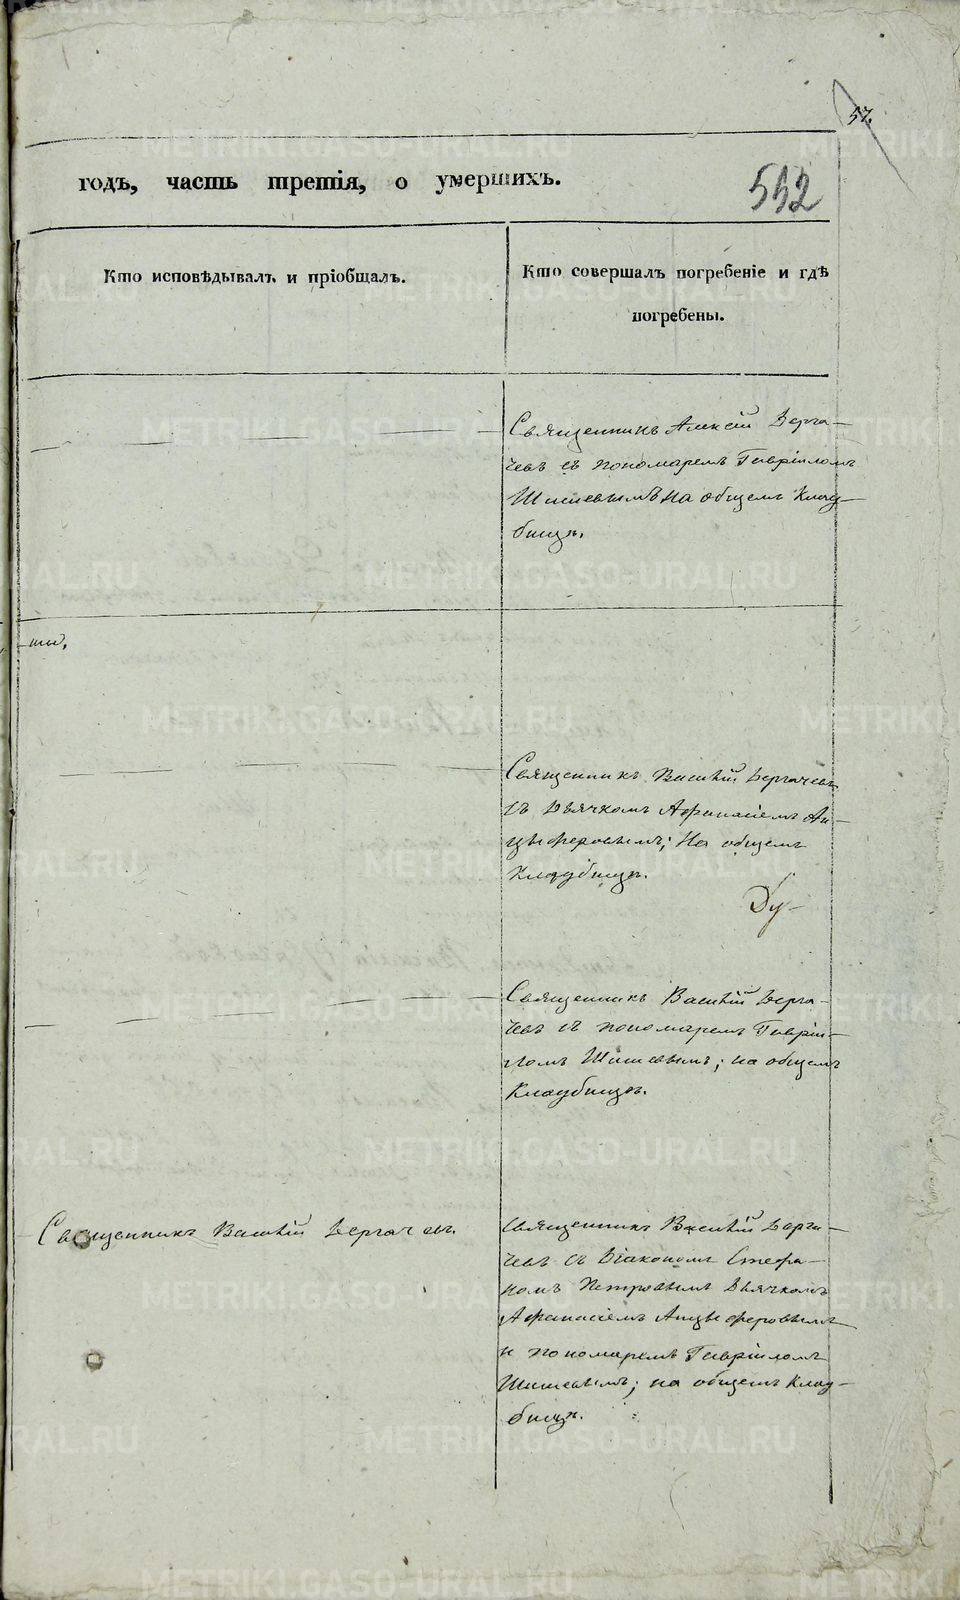 57.
552
годъ, часть третія, о умершихъ.
Кто исповѣдывалъ и пріобщалъ.
Кто совершалъ погребеніе и гдѣ
погребены.
Священникъ Алексій Верга-
чевъ съ пономаремъ Гавріиломъ
Шишевымъ на общемъ клад-
бищѣ.
Священникъ Василій Вергачевъ
съ дьячкомъ Афанасіемъ Ан-
цыферовымъ; на общемъ
кладбищѣ.
Ду-
Священникъ Василій Верга-
чевъ съ пономаремъ Гаврі-
иломъ Шишевымъ; на общемъ
кладбищѣ.
Священникъ Василій Вергачевъ.
Священникъ Василій Верга-
чевъ съ Діакономъ Стефа-
номъ Петровымъ дьячкомъ
Афанасіемъ Анцыферовымъ
и пономаремъ Гавріиломъ
Шишевымъ; на общемъ клад-
бищѣ.
METRIKI.GASO-URAL.RU